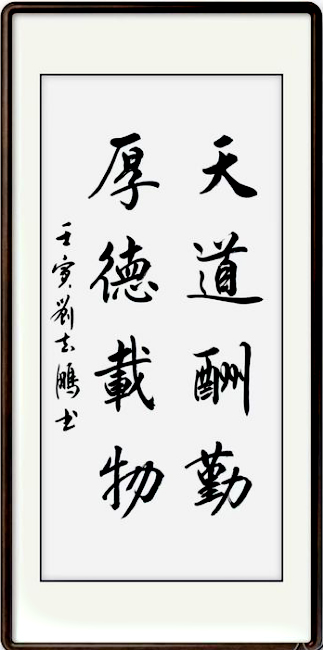 天道酬勤
厚德載物
壬寅劉志鵬书